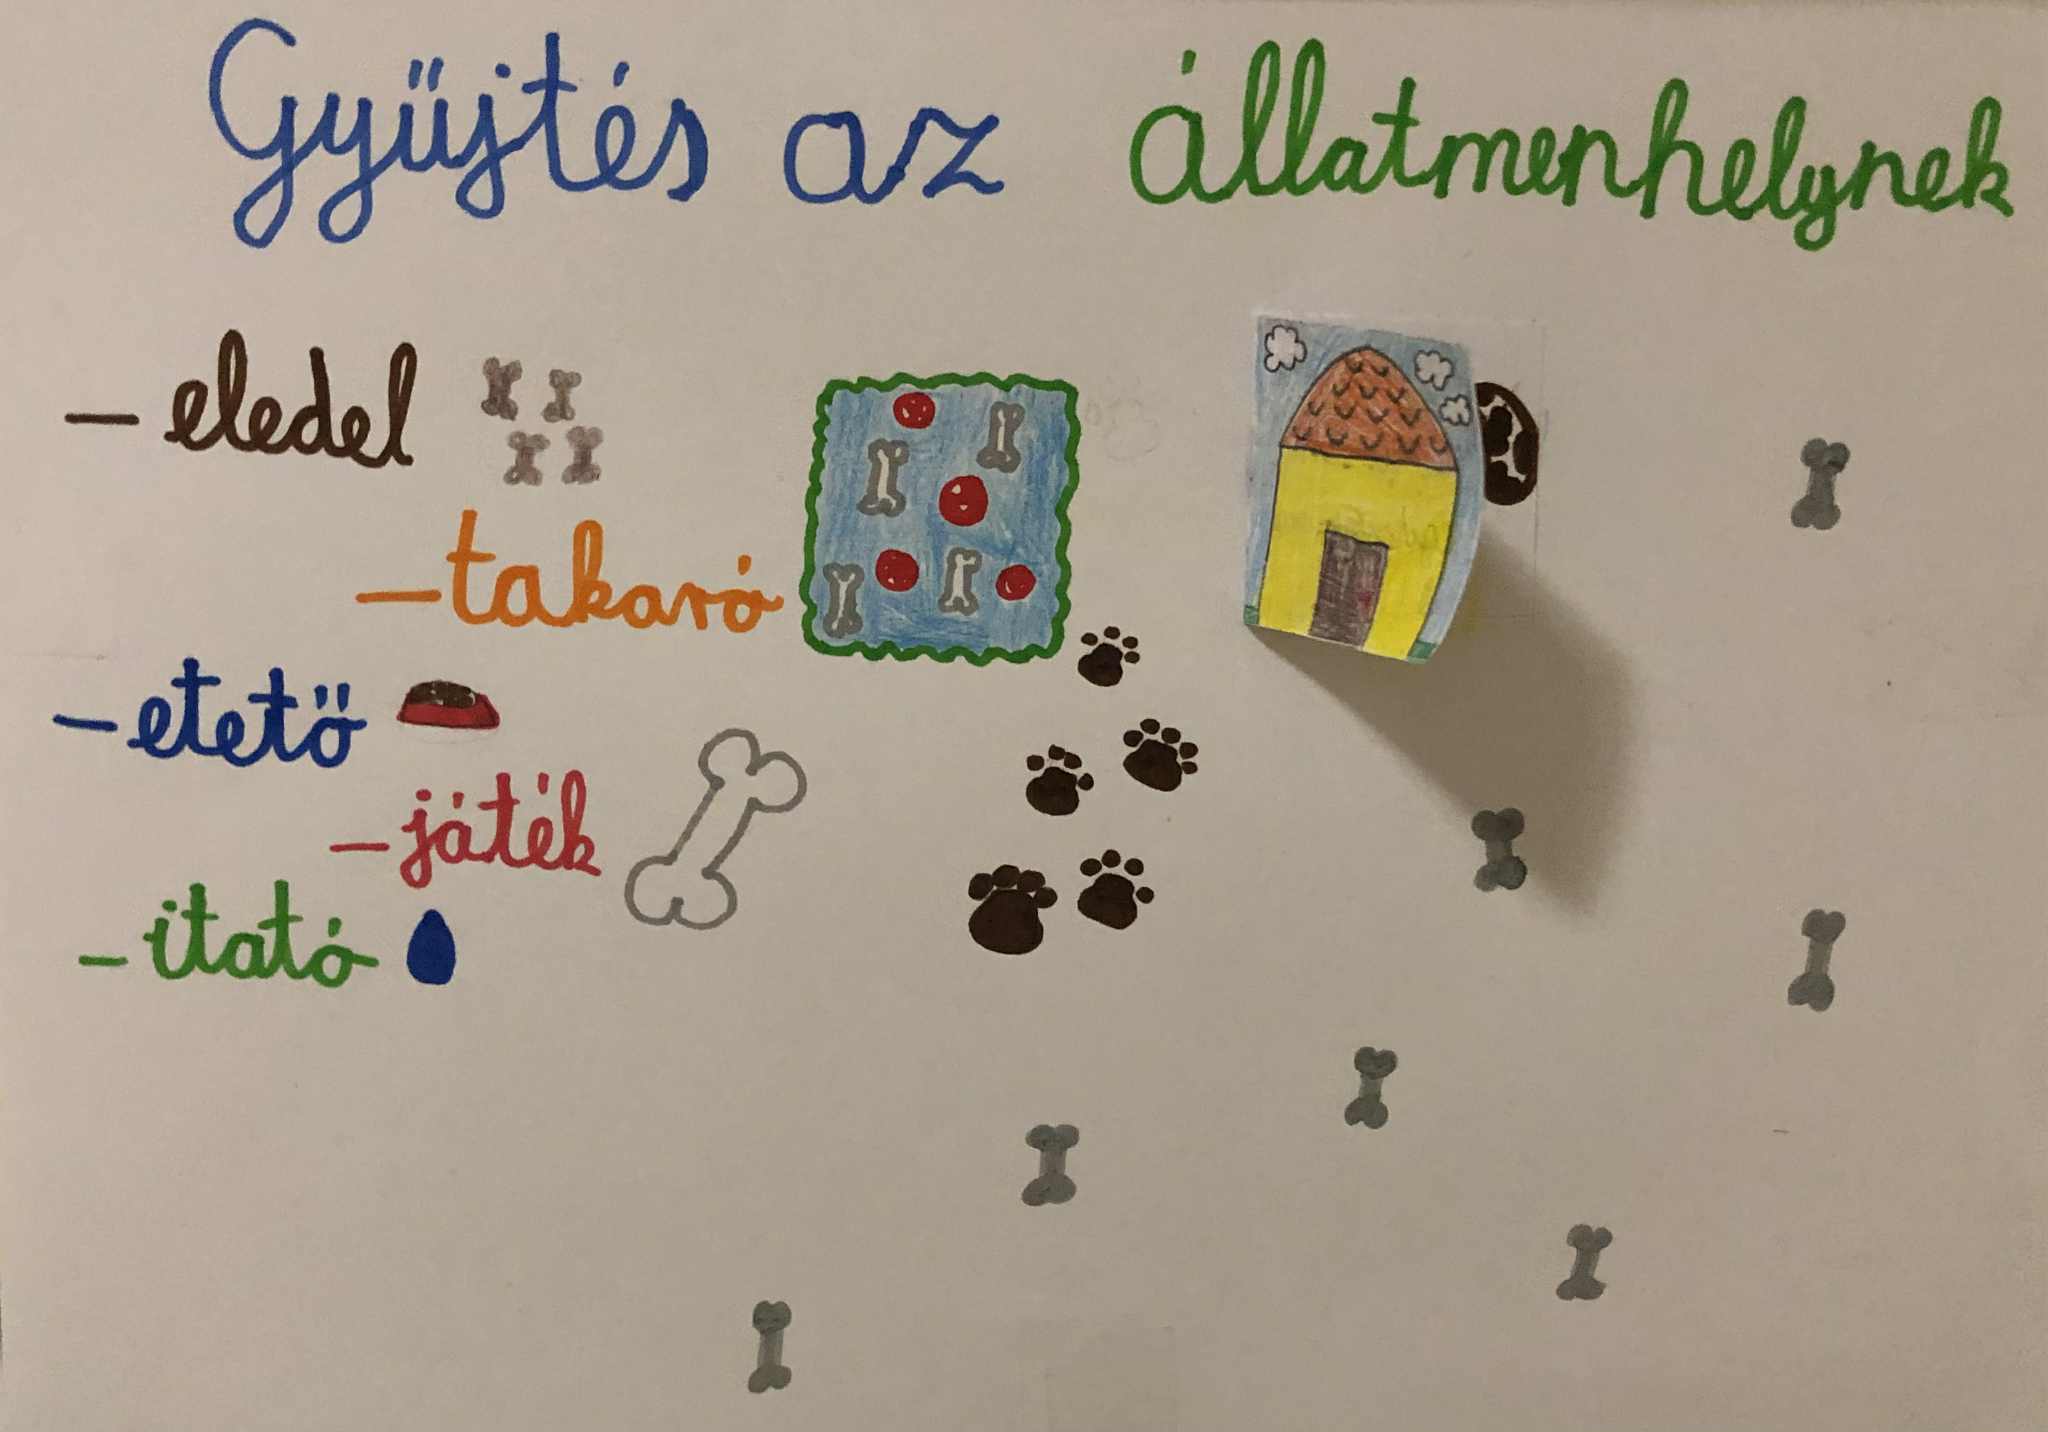 Gyűjtés az állatmenhelynek
– eledel
– takaró
– etető
– játék
– itató